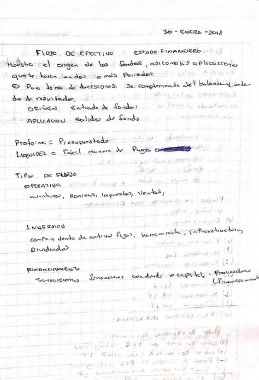 30 - ENERO - 2018
FLUJO DE EFECTIVO ESTADO FINANCIERO
Muestra el origen de los fondos, asi como las aplicaciones
que se hacen en dos o más Periodos.
Para toma de decisiones. Se complementa del balance y
do de resultados.
ORIGEN Entrada de fondos
APLICACION Salidas de fondos
Proforma = Presupuestado
LIQUIDEZ = Fácil manera de Pagos
TIPO DE FLUJO
OPERATIVA
inventarios, nominas, impuestos, ventas,
INVERSION
compra y venta de activos fijos, herramienta, infraestructura,
Dividendos
FINANCIAMIENTO
financieras capital,